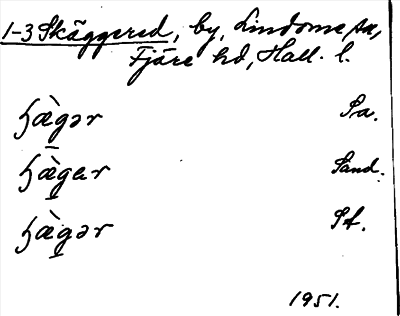 1-3 Skäggered, by, Lindome sn,
Fjäre hd, Hall. l.
ɧæ̀gər Sa.
ɧæ̀gɐr Sand.
ɧæ̀gər St.
1951.